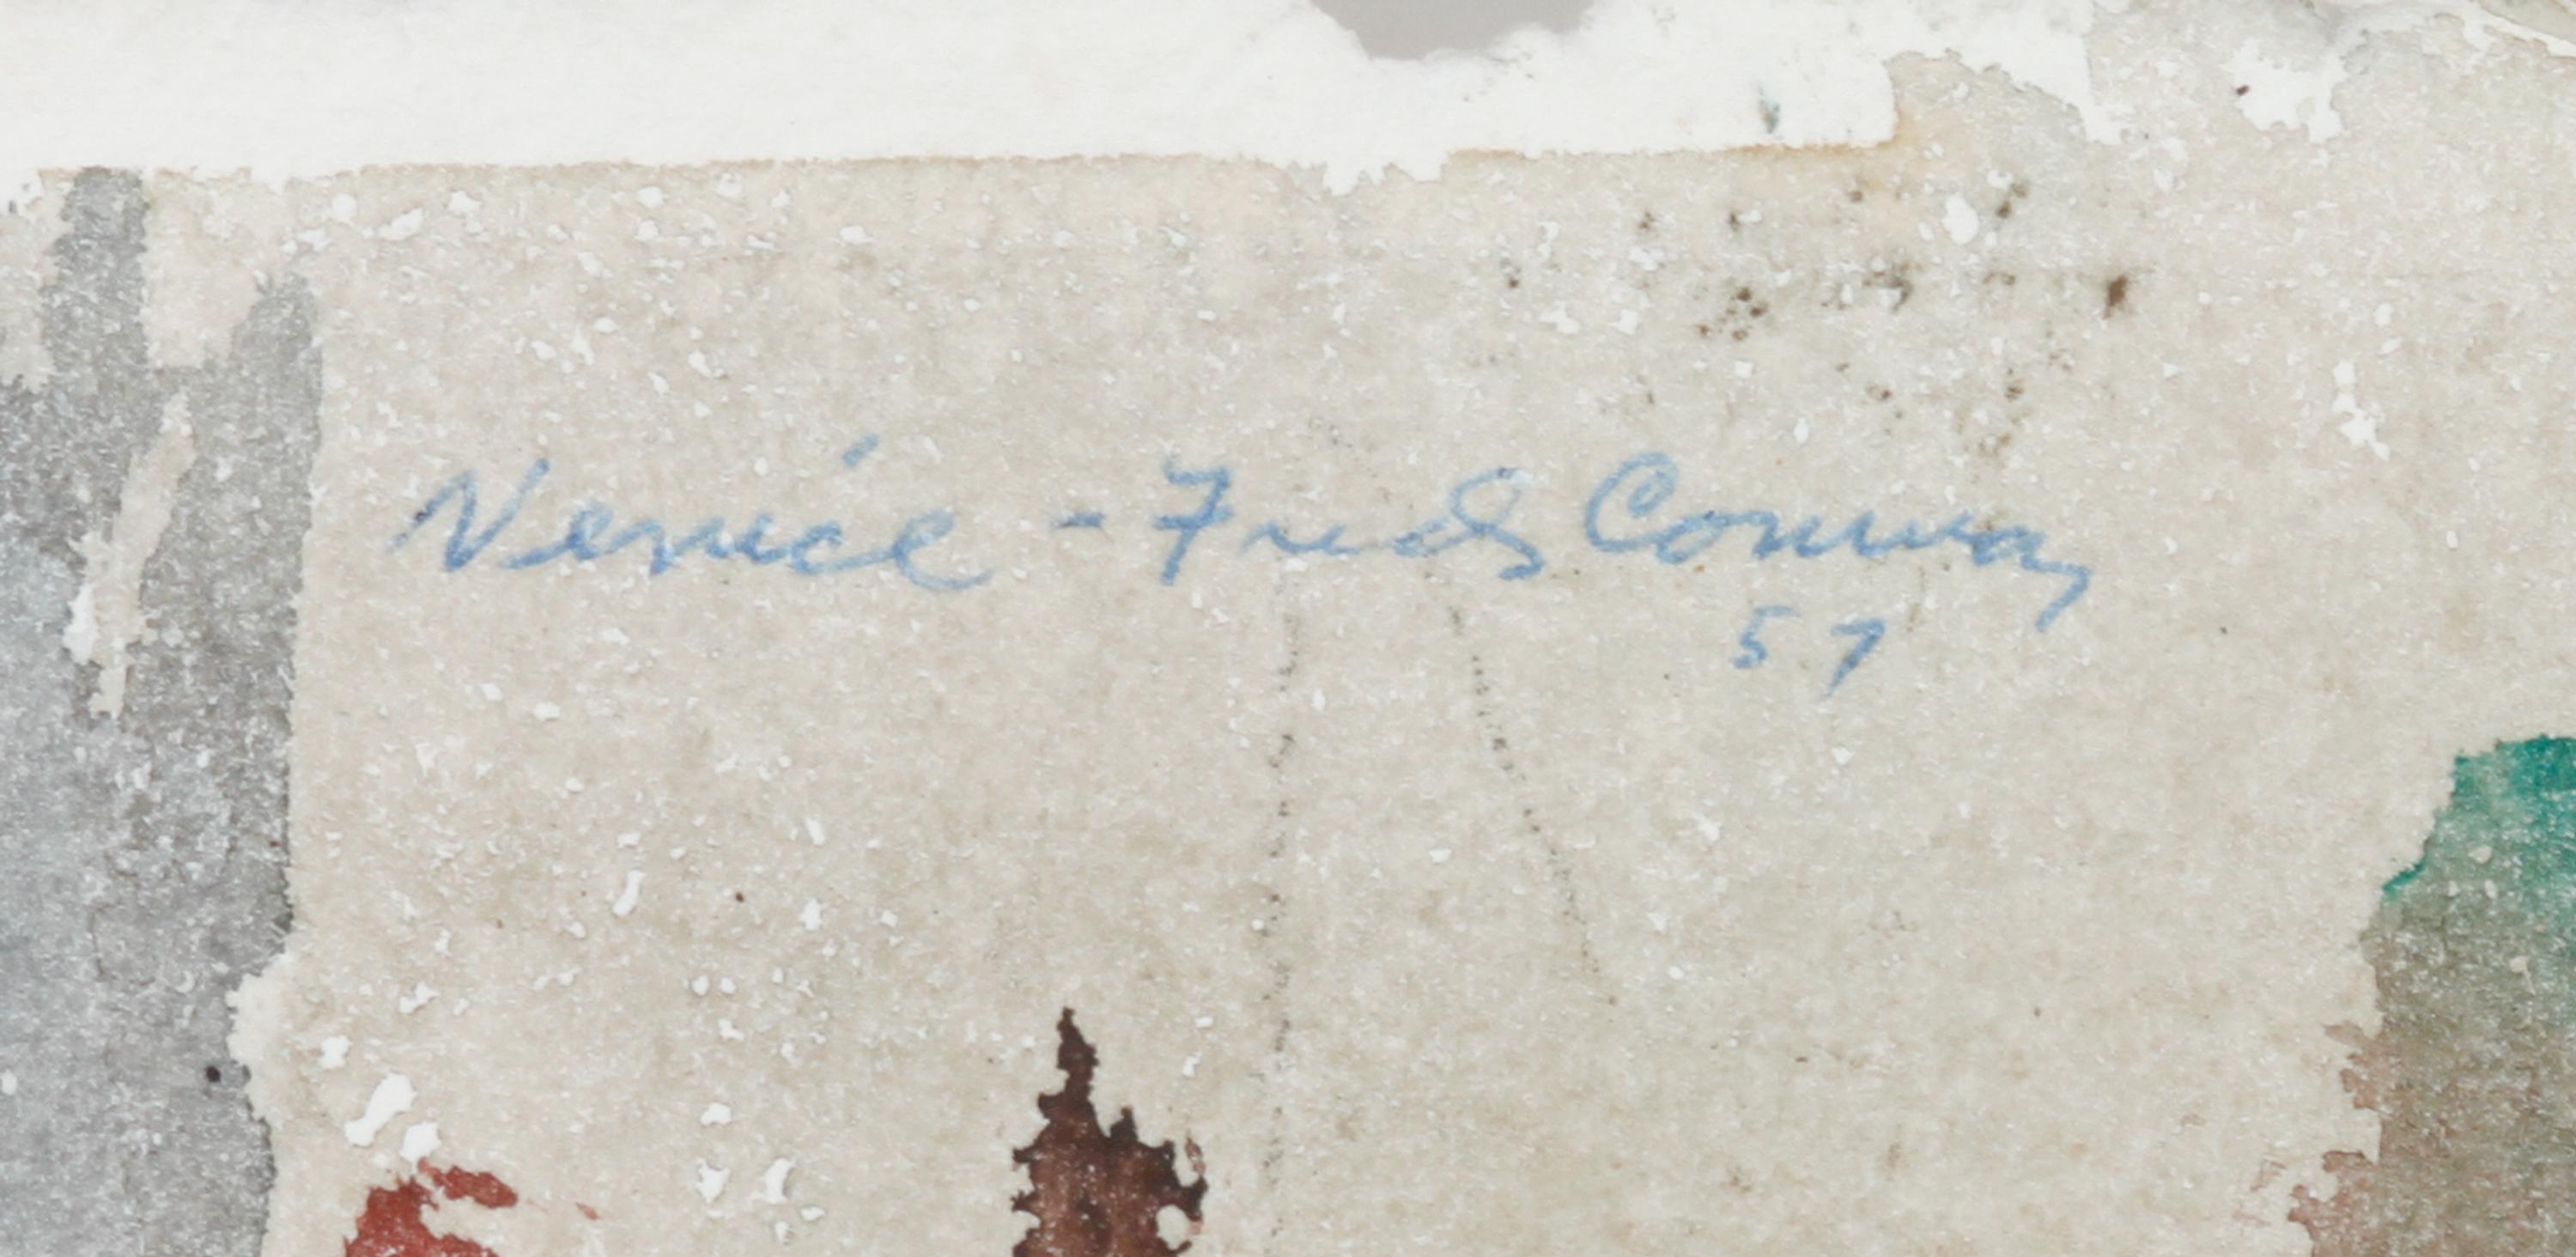 Venice - Fred Conway
57